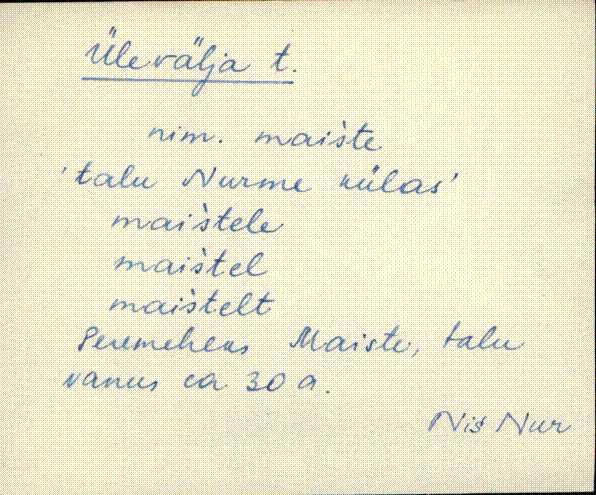 Ülevälja t.
nim. maìste
'talu Nurme külas'
maìstele
maìstel
maìstelt
Peremeheks Maiste, talu
vanus ca 30 a.
Nis Nur